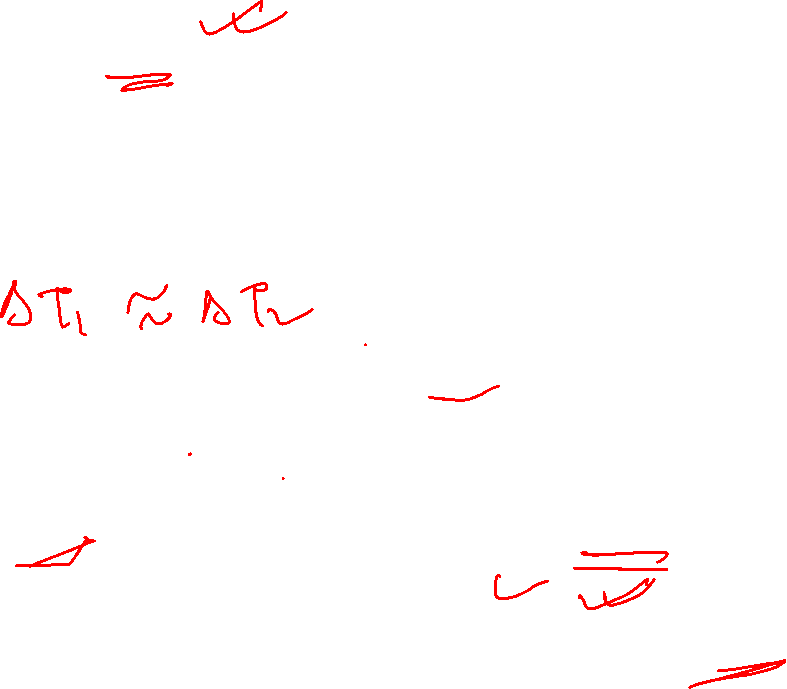 ΔT₁ ≈ ΔT₂